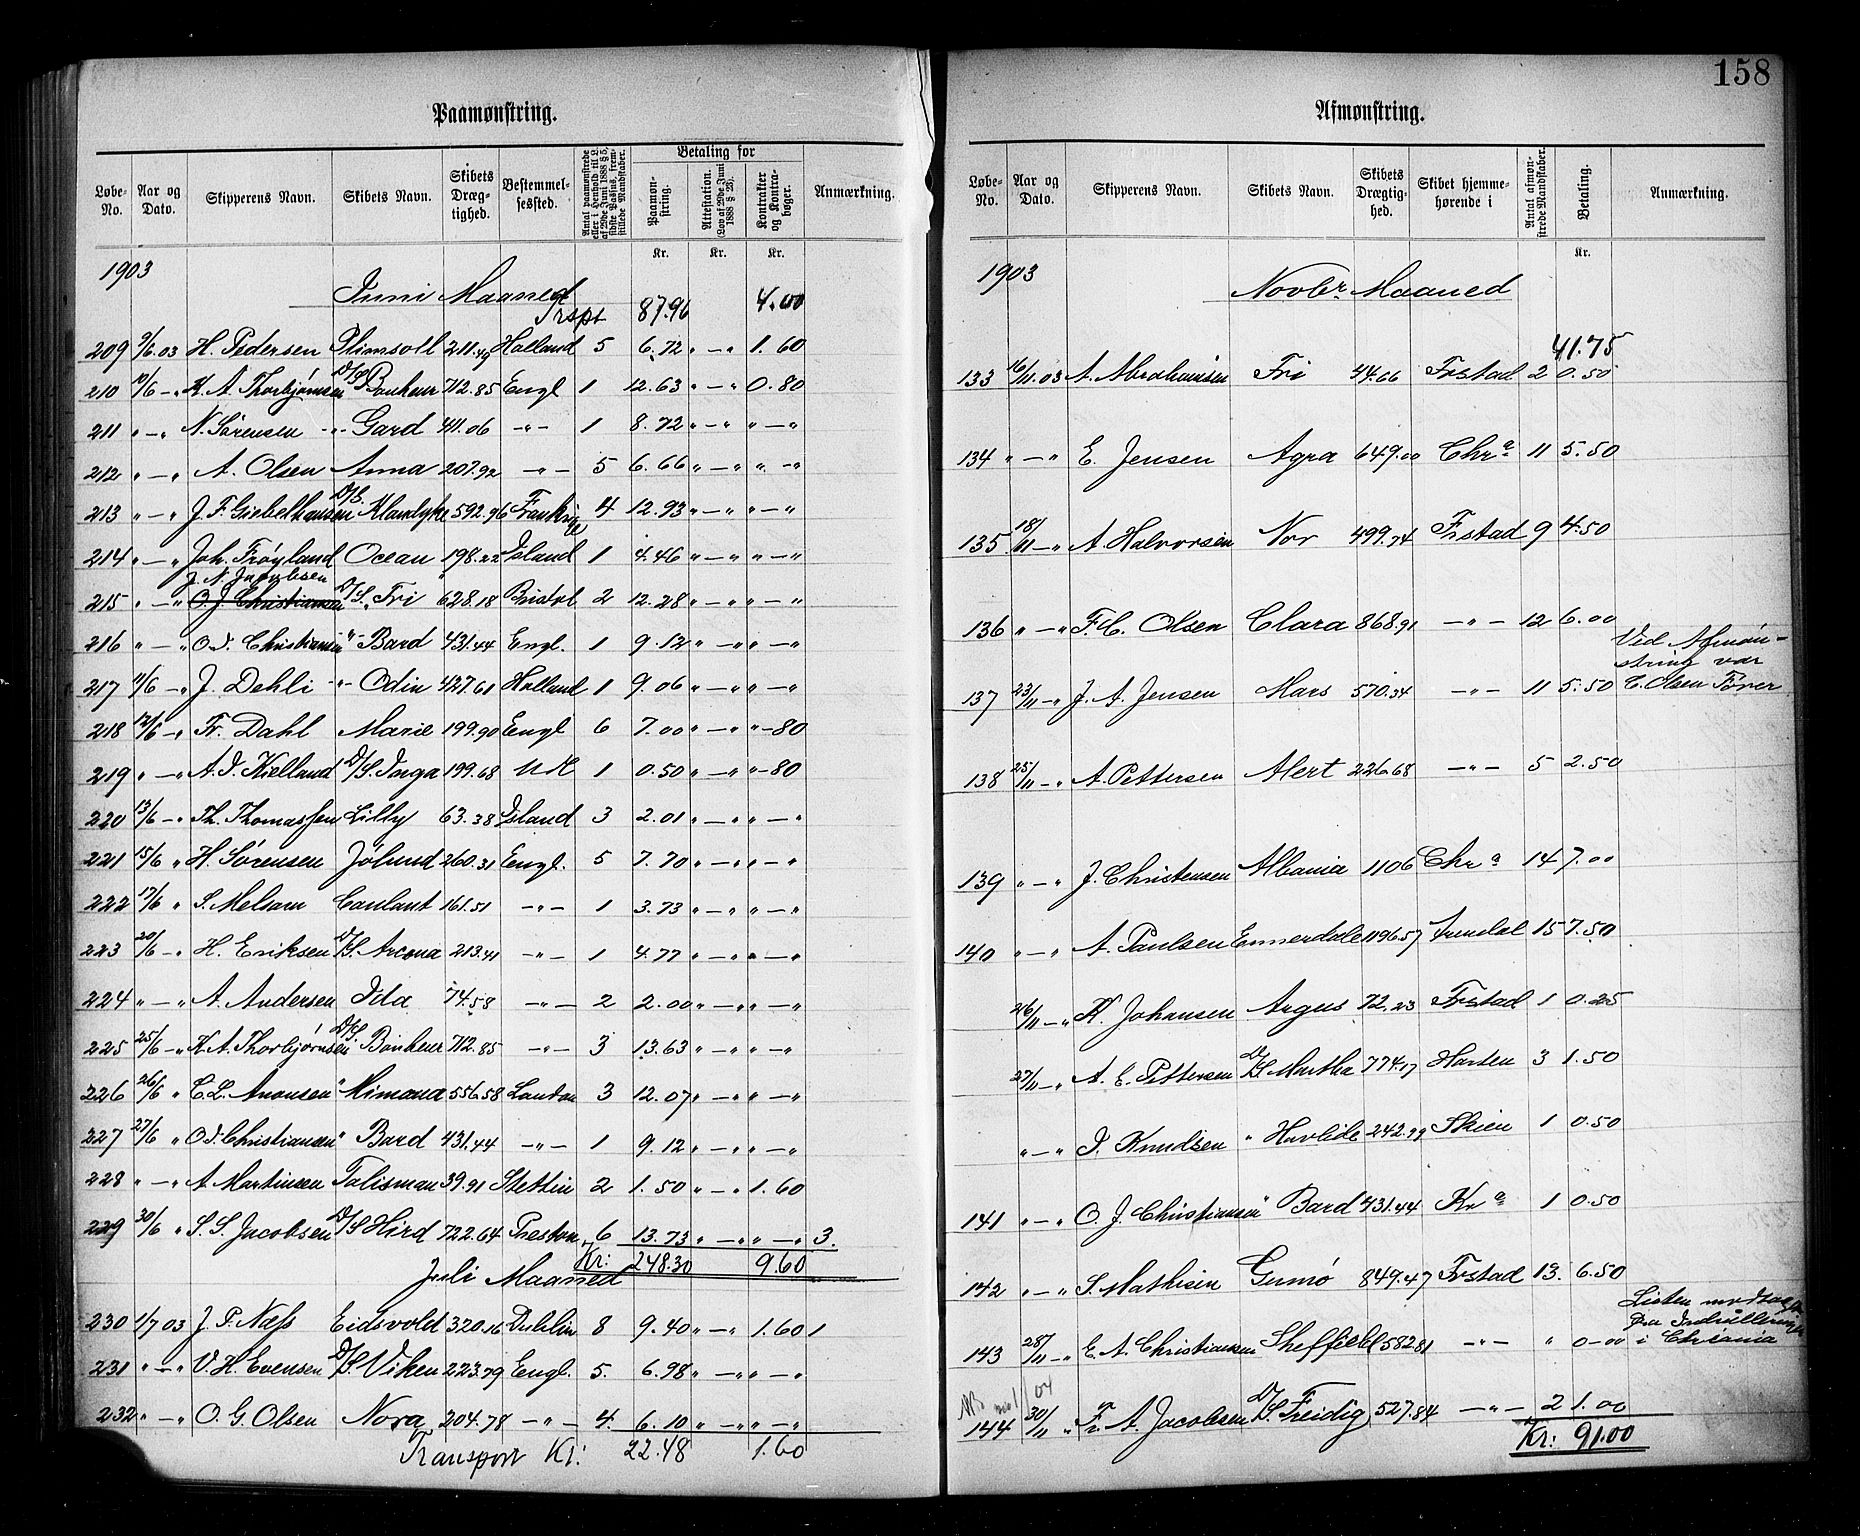 158
Paamønstring.
Løbe-No. | Aar og Dato. | Skipperens Navn. | Skibets Navn. | Skibets Dræg-tighed. | Bestemmel-sessted. | Antal paamønstrede eller i Henhold til L. af 29de Juni 1888 § 5, sidste Passus, frem-stillede Mandskaber. | Betaling for | Paamøn-string. | Attestation. (Lov af 29de Juni 1888 § 23). | Kontrakter og Kontra-bøger. | Anmærkning.
Kr. | Kr. | Kr.
1903
Juni Maaned
Trspt 87.96 4.00
209 9/6 03 H. Pedersen Plimsoll 211.49 Holland 5 6.72 " — " 1.60
210 10/6 — " K. A. Thorbjørnsen D/S Bonheur 712.85 Engl 1 12.63 " — " 0.80
211 " — " N. Sørensen — " — Gard 411.06 — " — 1 8.72 " — " " — "
212 " — " A. Olsen Anna 207.92 — " — 5 6.66 " — " " — "
213 " — " J. F. Giebelhausen D/S. Klondyke 592.96 Frankrige 4 12.93 " — " " — "
214 " — " Joh. Frøyland Ocean 198.22 Island 1 4.46 " — " " — "
J. N. Jacobsen
215 " — " O. J. Christiansen D/S. Fri 628.18 Bristol 2 12.28 " — " " — "
216 " — " O. J. Christiansen " Bard 431.44 Engl. 1 9.12 " — " " — "
217 11/6 — " J. Dehli — " — Odin 427.61 Holland 1 9.06 " — " " — "
218 12/6 — " Fr. Dahl Marie 199.90 Engl 6 7.00 " — " " — 80
219 " — " A. J. Kielland D/S. Inga 199.68 1 0.50 " — " " — 80
220 13/6 — " Th. Thomassen Lilly 63.38 Island 3 2.01 " — " " — "
221 15/6 " H. Sørensen Jølund 260.31 Engl. 5 7.70 " — " " — "
222 17/6 " S. Melsom 161.51 — " — 1 3.73 " — " " — "
223 20/6 — " H. Eriksen D/S. Arcona 213.41 — " — 1 4.77 " — " " — "
224 " — " A. Andersen Ida 74.58 — " — 2 2.00 " — " " — "
225 25/6 — " K. A. Thorbjørnsen D/S. Bonheur 712.85 — " — 3 13.63 " — " " — "
226 26/6 " C. L. Anonsen " Mimona 556.58 London 3 12.07 " — " " — "
227 27/6 " O. J. Christiansen " Bard 431.44 — " — 1 9.12 " — " " — "
228 " — " A. Martinsen Talisman 39.91 Stettin 2 1.50 " — " 1.60
229 30/6 " S. S. Jacobsen D/S Hird 722.64 Preston 6 13.73 " — " " — " 3.
Kr: 248.30 9.60
Juli Maaned
230 1/7 03 J. P. Næss Eidsvold 320.16 Dublin 8 9.40 " — " 1.60 1
231 " — " V. H. Evensen D/S Viken 223.79 Engl. 5. 6.98 " — " " — "
232 " — " O. G. Olsen Nora 204.78 — " — 4. 6.10 " — " " — "
Transport Kr: 22.48 1.60
Afmønstring.
Løbe-No. | Aar og Dato. | Skipperens Navn. | Skibets Navn. | Skibets Drægtig-hed. | Skibet hjemme-hørende i | Antal afmøn-strede Mandskaber. | Betaling. | Anmærkning.
Kr.
1903
Novbr. Maaned
41.75
133 16/11.03 A. Abrahamsen Fri 44.66 Frstad 2 0.50
134 " — " E. Jensen Agra 649.00 Chr.a 11 5.50
135 18/11 — " A. Halvorsen Nor 499.74 Frstad 9 4.50
136 " — " F. C. Olsen Clara 868.91 — " — 12 6.00
Ved Afmøn-
string var
137 23/11 — " J. A. Jensen Mars 570.34 — " — 11 5.50 C. Olsen Fører
138 25/11 — " A. Pettersen Alert 226.68 — " — 5 2.50
139 " — " J. Christensen Albania 1106 Chr a 14 7.00
140 " — " A. Paulsen Ennerdale 1196.57 Arendal 15 7.50
26/11 — " K. Johansen Argus 72.23 Frstad 1 0.25
27/11 — " A. E. Pettersen D/S Martha 774.17 Horten 3 1.50
" — " I. Knudsen " Havlide 242.99 Skien 1 0.50
141 " — " O. J. Christiansen " Bard 431.44 Kr a 1 0.50
142 " — " S. Mathisen Gumø 849.47 Frstad 13. 6.50
Listen modtaget
fra Indrulleringen
143 28/11 — " E. A. Christiansen Sheffield 582.81 — " — " 0-00 i Chriania
144 30/11 " Fr. A. Jacobsen D/S. Freidig 527.84 — " — 2 1.00
Kr: 91.00